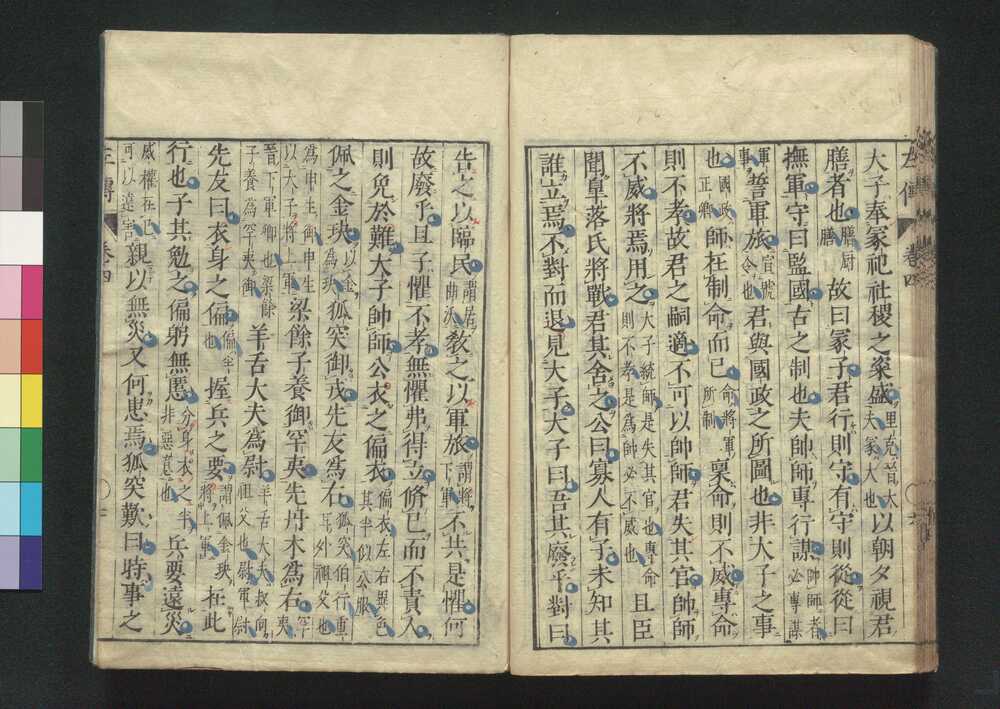 大子奉冢祀社稷之粢盛里克晉大夫冢大也以朝夕視君
膳者也膳廚膳故曰冢子君行則守有守則從從曰
撫軍守曰監國古之制也夫帥師專行謀帥師者必專謀
軍事誓軍旅宣號令也君與國政之所圖也非大子之事
也國政正卿師在制命而已命將軍所制稟命則不威專命
則不孝故君之嗣適不可以帥師君失其官帥師
不威將焉用之大子統師是失其官也專命則不孝是為帥必不威也且臣
聞皐落氏將戰君其舍之公曰寡人有子未知其
誰立焉不對而退見大子大子曰吾其廢乎對曰
告之以臨民謂居曲沃敎之以軍旅謂將下軍不共是懼何
故廢乎且子懼不孝無懼弗得立脩己而不責人
則免於難大子帥師公衣之偏衣偏衣左右異色其半似公服
佩之金玦以金為玦狐突御戎先友為右狐突伯行重耳外祖父也
為申生御申生以大子將上軍梁餘子養御罕夷先丹木為右罕夷
晉下軍卿也梁餘子養為罕夷御羊舌大夫為尉羊舌大夫叔向祖父也尉軍尉
先友曰衣身之偏偏半也握兵之要謂佩金玦將上軍在此
行也子其勉之偏躬無慝分身衣之半非惡意也兵要遠災
威權在己可以遠害親以無災又何患焉狐突歎曰時事之
左傳
卷四